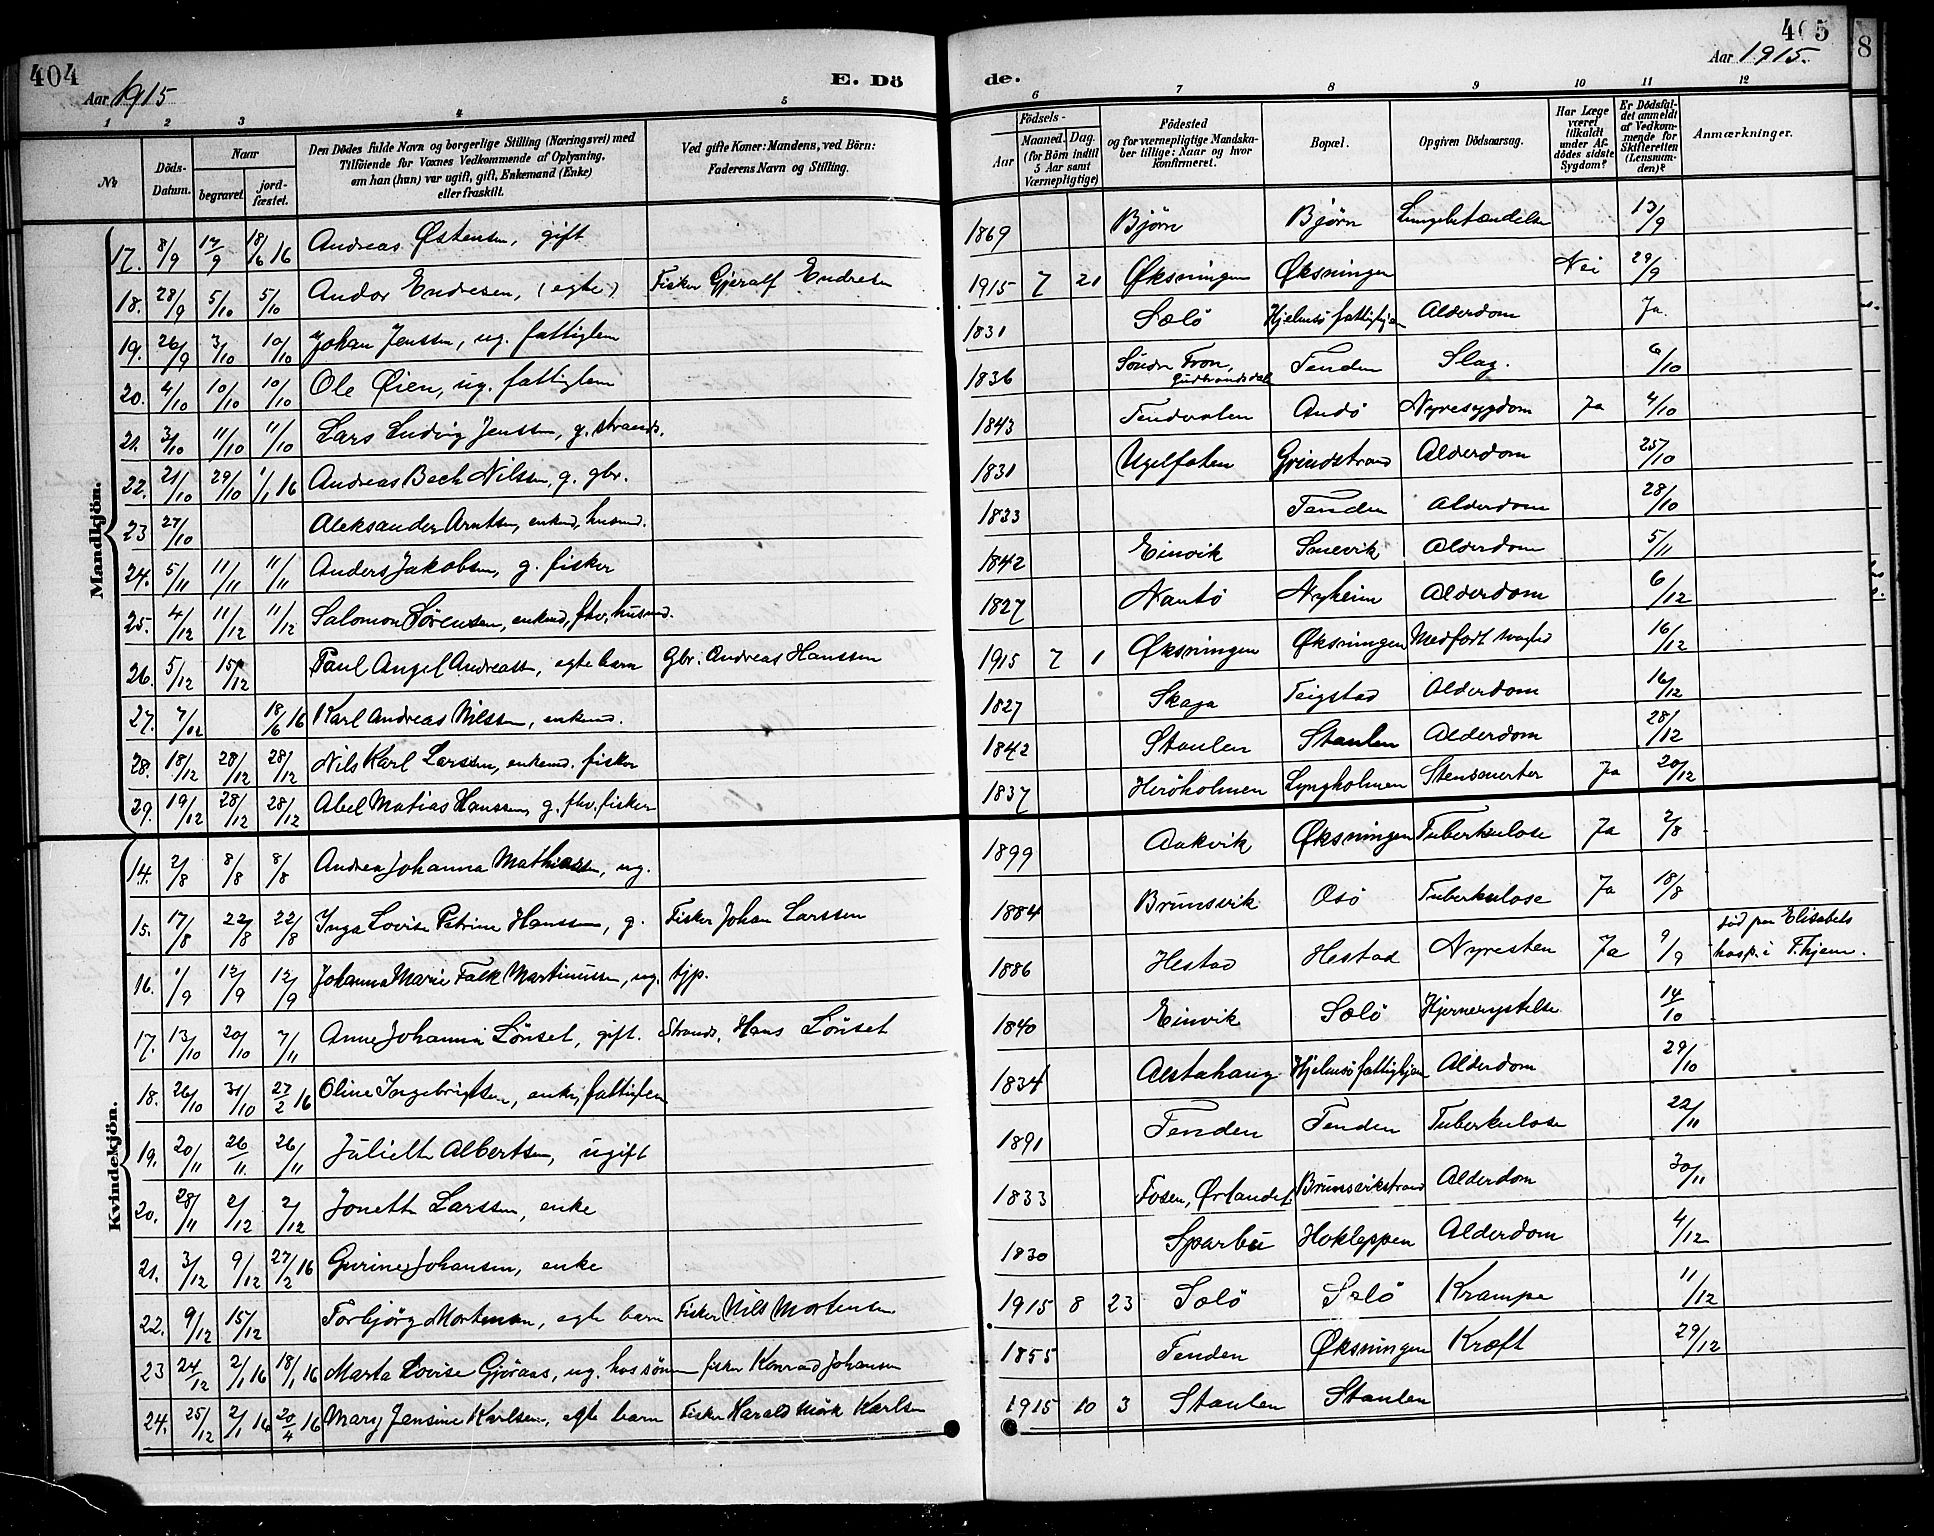 404
Aar 1915
E. Dö
1 2 3 4 5
No
Döds-Datum.
Naar
begravet
jord-fæstet.
Den Dödes fulde Navn og borgerlige Stilling (Næringsvei) med
Tilföiende for Voxnes Vedkommende af Oplysning,
om han (hun) var ugift, gift, Enkemand (Enke)
eller fraskilt.
Ved gifte Koner: Mandens, ved Börn:
Faderens Navn og Stilling.
Mandkjön.
17. 8/9 12/9 18/6 16 Andreas Østensen, gift
18. 28/9 5/10 5/10 Andor Endresen, (egte) Fisker Gjeralf Endresen
19. 26/9 3/10 10/10 Johan Jenssen, ug. fattiglem
20. 4/10 10/10 10/10 Ole Øien, ug. fattiglem
21. 3/10 11/10 11/10 Lars Ludvig Jenssen, g. strands.
22. 21/10 29/10 1/1 16 Andreas Bech Nilssen, g. gbr.
23 27/10 Aleksander Arntsen, enkmd, husmd.
24. 5/11 11/11 11/11 Anders Jakobsen, g. fisker
25. 4/12 11/12 11/12 Salomon Sörensen, enkmd, fhv. husmd.
26. 5/12 15/12 Paul Angel Andreassen, egte barn Gbr. Andreas Hanssen
27. 7/12 18/6 16 Karl Andreas Nilssen, enkmd.
28. 18/12 28/12 28/12 Nils Karl Larssen, enkemd. fisker
29. 19/12 28/12 28/12 Abel Matias Hanssen, g. fhv. fisker
Kvindekjön.
14. 2/8 8/8 8/8 Andrea Johanna Mathiassen, ug.
15. 17/8 22/8 22/8 Inga Lovise Petrine Hanssen, g. Fisker Johan Larssen
16. 1/9 12/9 12/9 Johanna Marie Falk Martinussen, ug. tjp.
17. 13/10 20/10 7/11 Anne Johanna Lönset, gift. Strands. Hans Lönset
18. 26/10 31/10 27/2 16 Oline Ingebrigtsen, enke, fattiglem
19. 20/11 26/11 26/11 Juliette Albertsen, ugift
20. 28/11 2/12 2/12 Jonette Larssen, enke
21. 3/12 9/12 27/2 16 Gurine Johansen, enke
22. 9/12 15/12 Torbjörg Mortensen, egte barn Fisker Nils Mortensen
23 24/12 2/1 16 18/1 16 Marta Lovise Gjöraas, ug. hos sönnen fisker Konrad Johansen
24. 25/12 2/1 16 20/4 16 Mary Jensine Karlsen, egte barn Fisker Harald Mörk Karlsen
405
8
Aar 1915.
de.
6 7 8 9 10 11 12
Födsels-
Aar
Maaned. Dag.
(for Börn indtil
5 Aar samt
Værnepligtige)
Födested
og for værnepligtige Mandska-
ber tillige: Naar og hvor
konfirmeret.
Bopæl.
Opgiven Dödsaarsag.
Har Læge
været
tilkaldt
under Af-
dödes sidste
Sygdom?
Er Dödsfal-
det anmeldt
af Vedkom-
mende for
Skifteretten
(Lensman-
den)?
Anmærkninger.
1869 Bjørn Bjørn Lungebetændelse 13/9
1915 7 21 Øksningen Øksningen Nei 29/9
1831 Sælö Hjelmsö fattighjem Alderdom Ja.
1836 Söndre Fron, Gudbrandsdalen Tenden Slag. 6/10
1843 Tendvalen Andö Nyresygdom Ja 4/10
1831 Ugelfaten Grindstrand Alderdom 25/10
1833 Tenden Alderdom 28/10
1842 Einvik Snevik Alderdom 5/11
1827 Nautö Nyheim Alderdom 6/12
1915 7 1 Øksningen Øksningen Medfödt svaghed 16/12
1827 Skaga Teigstad Alderdom 16/12
1842 Staulen Staulen Alderdom 28/12
1837 Heröholmen Lyngholmen Stensmerter Ja 20/12
1899 Aakvik Øksningen Tuberkulose Ja 2/8
1884 Brunsvik Osö Tuberkulose Ja 18/8
1886 Hestad Hestad Nyresten Ja 9/9 död paa Elisabeth
hosp. i T.hjem.
1840 Einvik Sælö Hjernerystelse 14/10
1834 Alstahaug Hjelmsö fattighjem Alderdom 29/10
1891 Tenden Tenden Tuberkulose 22/11
1833 Fosen, Ørlandet Brunsvikstrand Alderdom 30/11
1830 Sparbu Hokleppen Alderdom 4/12
1915 8 23 Sælö Sælö Krampe 11/12
1855 Tenden Øksningen Kræft 29/12
1915 10 3 Staulen Staulen